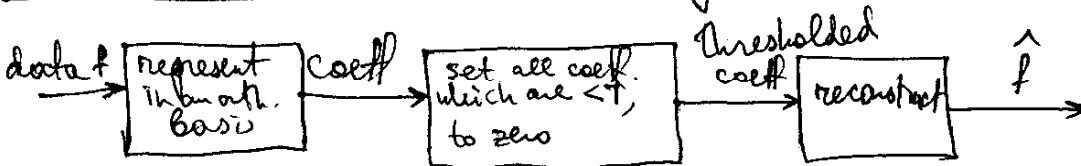 data f
represent
in an orth.
basis
coeff
set all coef.
which are <T,
to zero
Thresholded
coeff
reconstruct
f̂